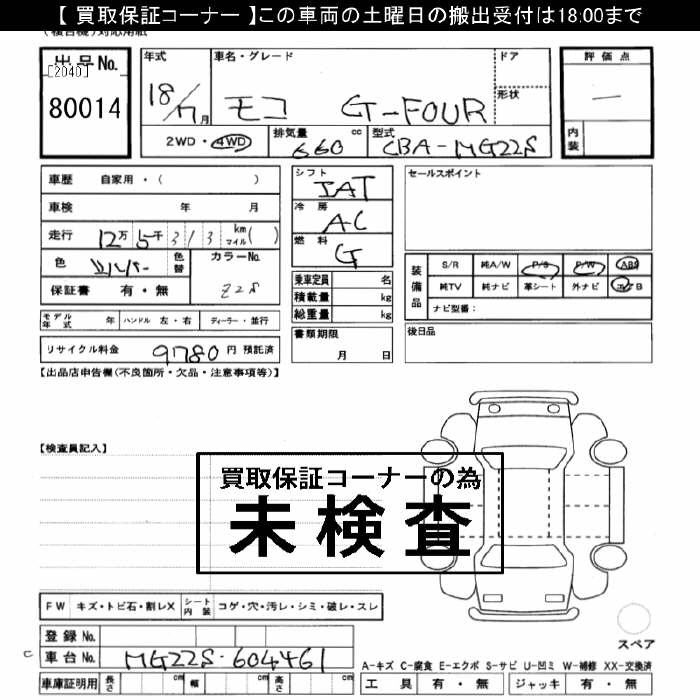 【 買取保証コーナー 】この車両の土曜日の搬出受付は18:00まで
出品No.
[2040]
80014
年式
18/7月
車名・グレード
モコ G-FOUR
ドア
形状
評価点
—
内装
2WD・4WD
排気量 cc
660
型式
CBA-MG22S
車歴 自家用・( )
車検 年 月
走行 12万5千313 km マイル( )
色 シルバー
色替
カラーNo.
Z2S
保証書 有・無
シフト
IAT
冷房
AC
燃料
G
乗車定員 名
積載量 kg
総重量 kg
セールスポイント
装備品
S/R 純A/W P/S P/W ABS
純TV 純ナビ 革シート 外ナビ エアB
ナビ型番:
モデル年式 年 ハンドル 左・右 ディーラー・並行
書類期限
月 日
後日品
リサイクル料金 9780 円 預託済
【出品店申告欄(不良箇所・欠品・注意事項等)】
【検査員記入】
買取保証コーナーの為
未検査
FW キズ・トビ石・割レX シート内装 コゲ・穴・汚レ・シミ・破レ・スレ
スペア
登録No.
C 車台No. MG22S-604461
A-キズ C-腐食 E-エクボ S-サビ U-凹ミ W-補修 XX-交換済
車庫証明用 長さ cm 幅 cm 高さ cm
工具 有・無 ジャッキ 有・無